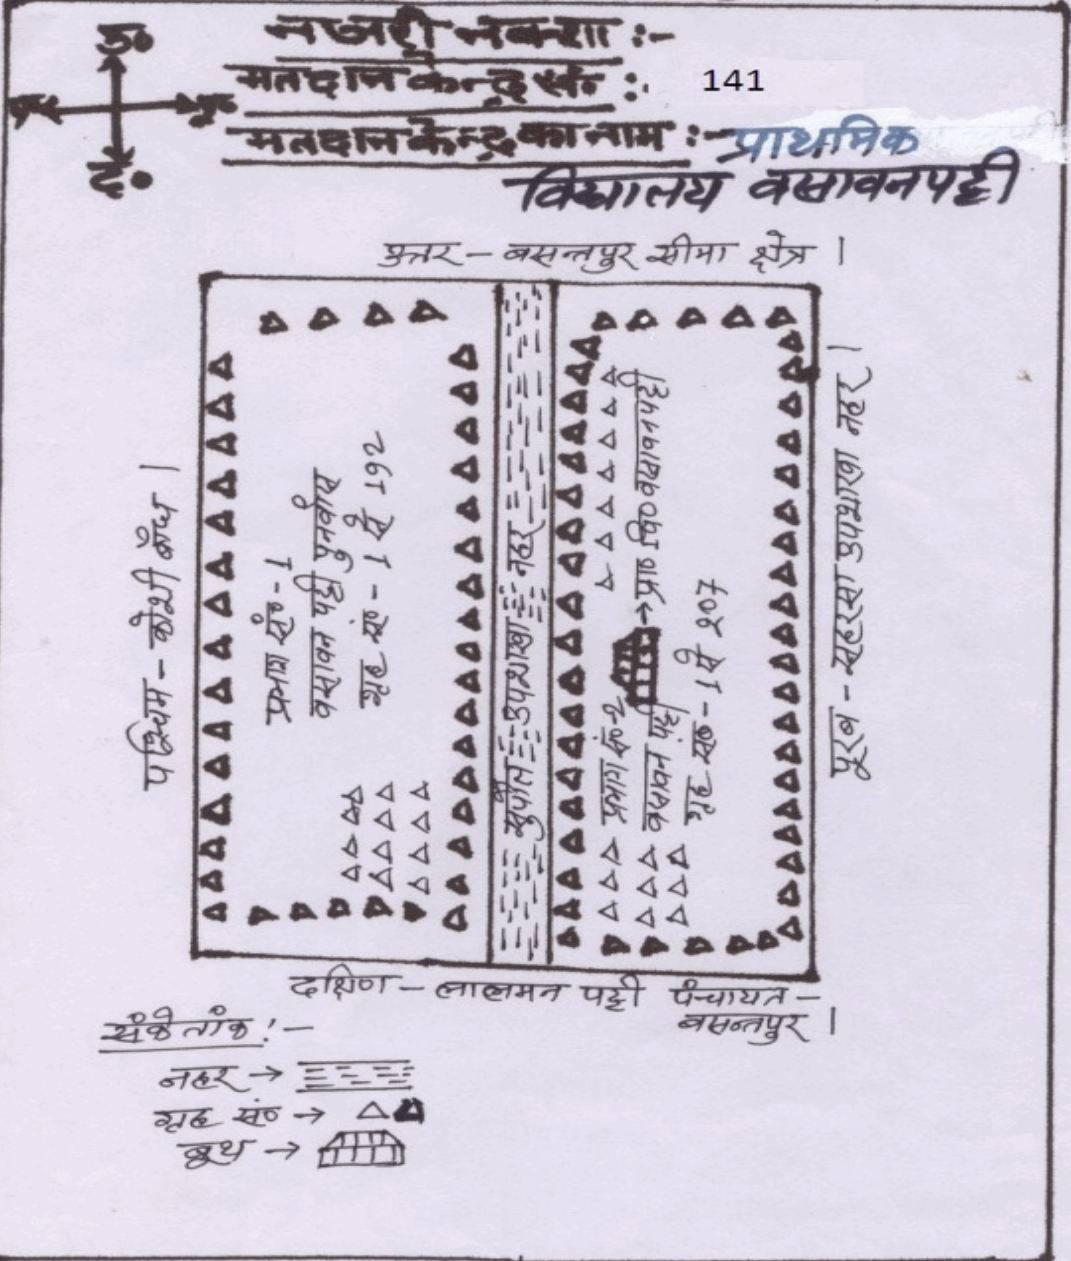 नजरी नक्शा :-
मतदान केन्द्र सं० :- 141
मतदान केन्द्र का नाम :- प्राथमिक
विद्यालय वसावनपट्टी
उ०
प० पू०
द०
उत्तर - बसन्तपुर सीमा क्षेत्र ।
पश्चिम - कोशी बाँध ।
प्रभाग सं० - 1
वसावन पट्टी पुनर्वास
गृह सं० - 1 से 192
सुपौल उपशाखा नहर
प्रा० वि० वसावनपट्टी
प्रभाग सं०-2
वसावन पट्टी
गृह सं० - 1 से 207
पूरब - सहरसा उपशाखा नहर ।
दक्षिण - लालमन पट्टी पंचायत -
बसन्तपुर ।
संकेतांक :-
नहर →
गृह सं० →
बूथ →